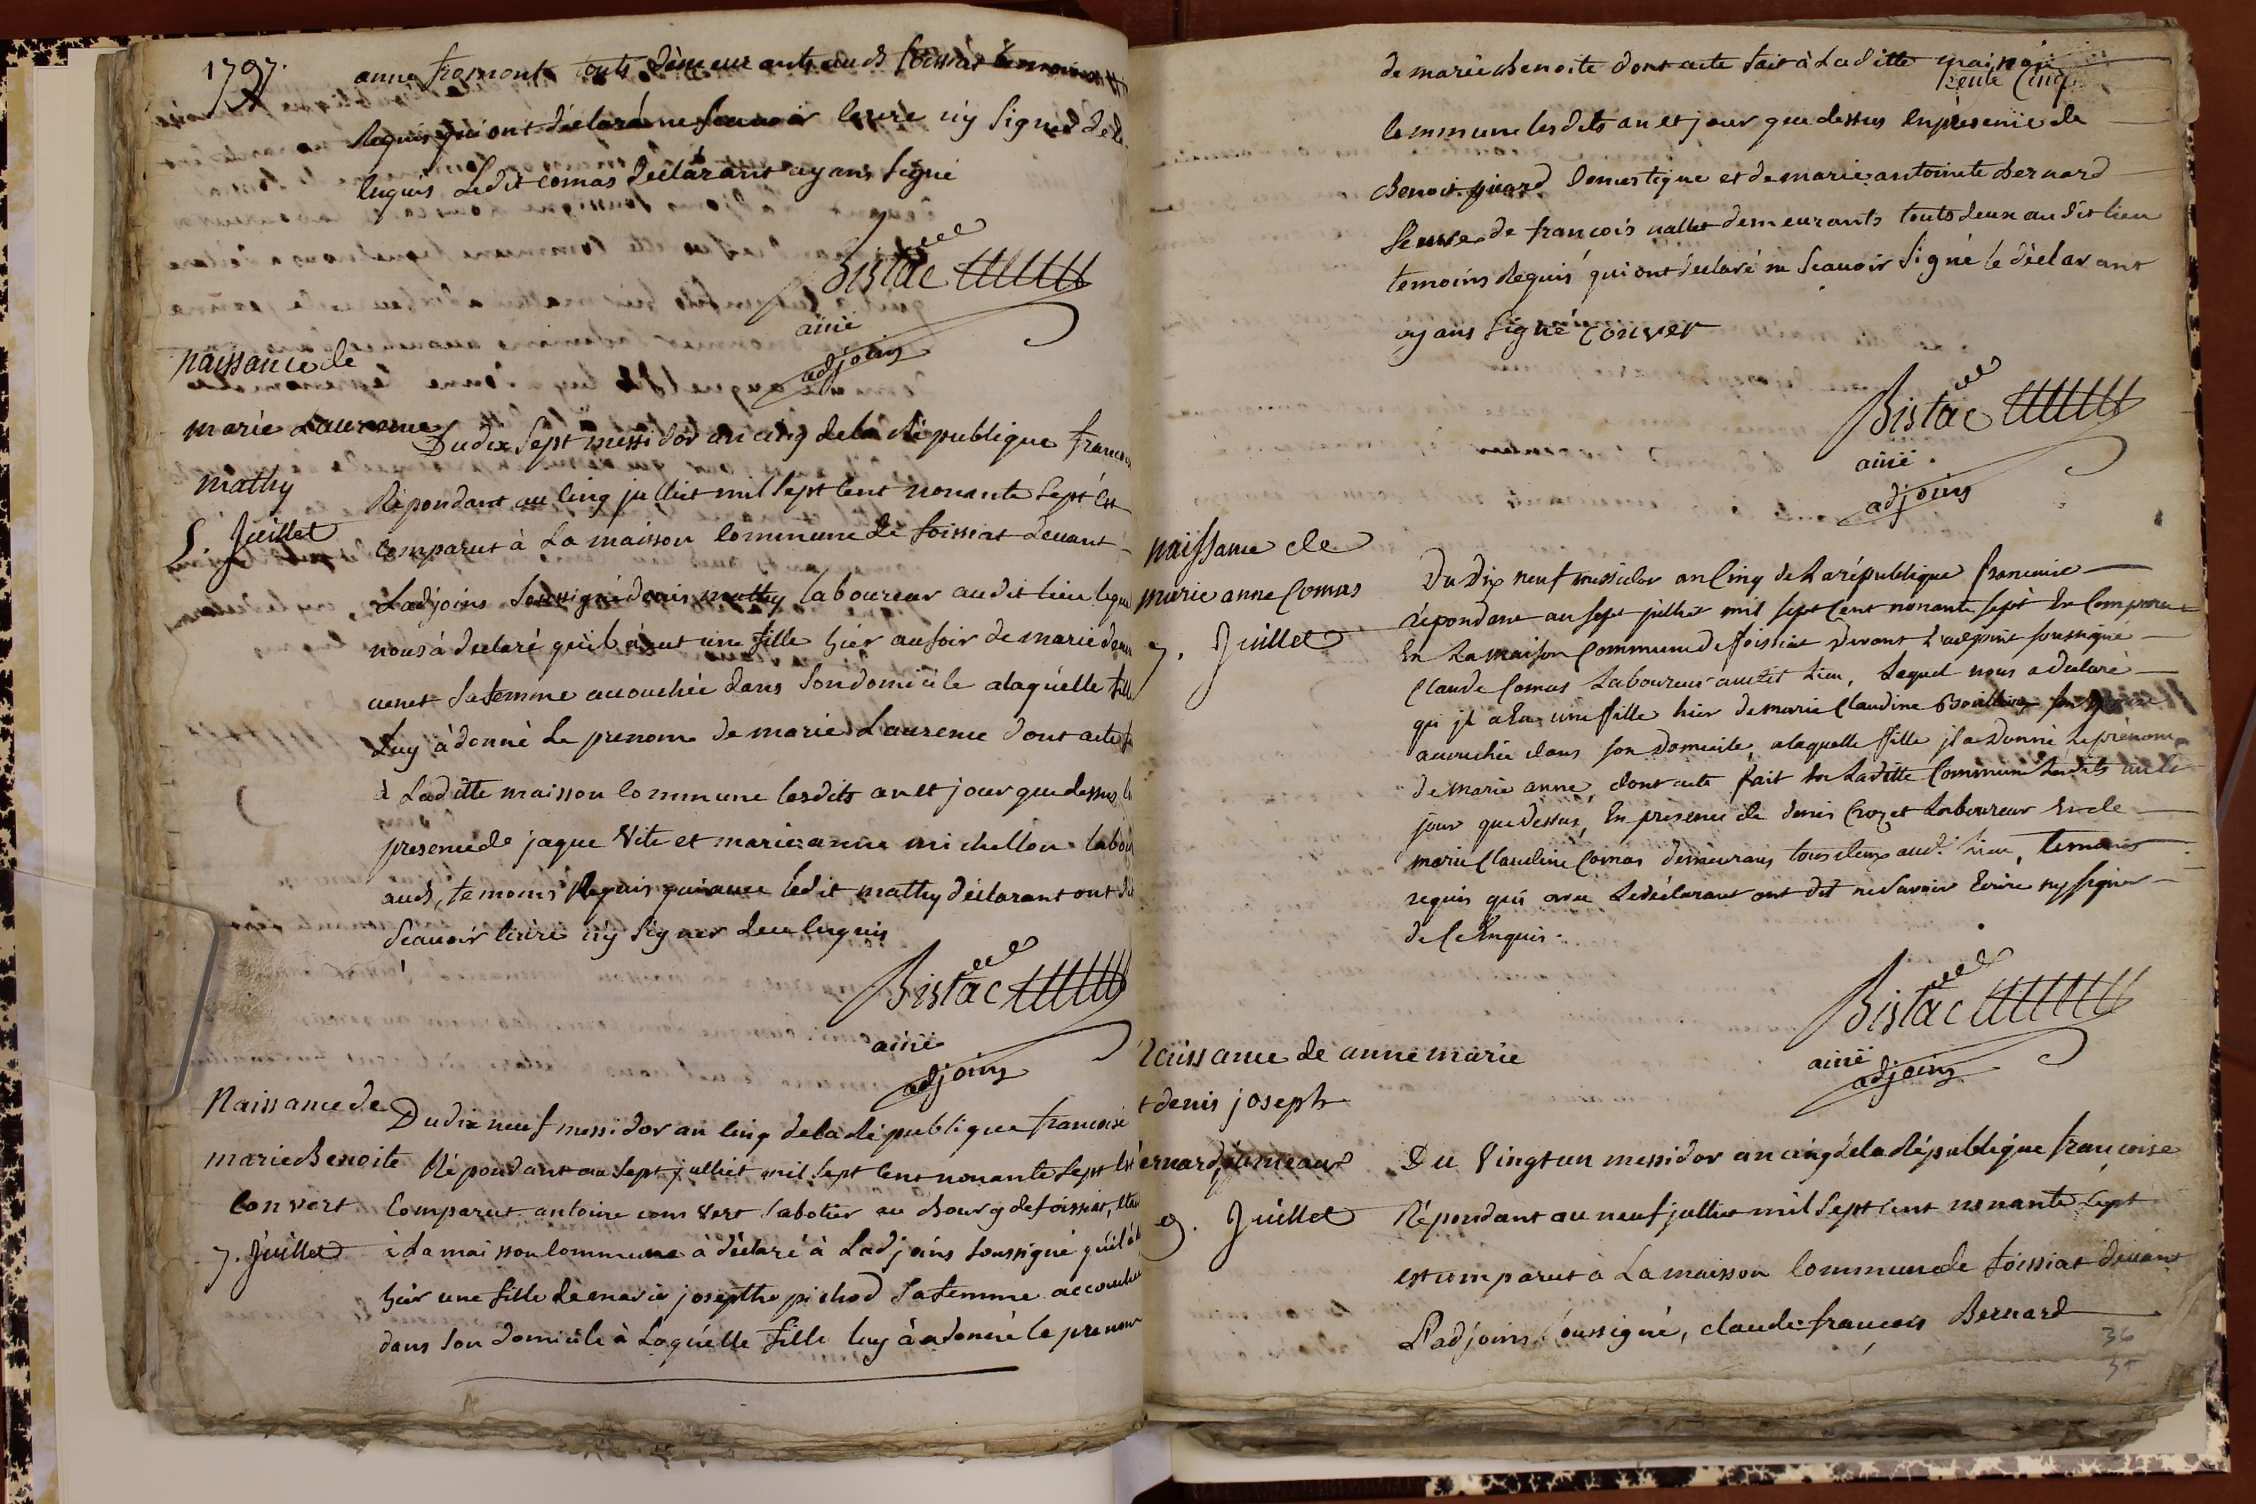 1797.
anne fromont touts demeurants aud foissiat temoins
Requis qui ont declaré ne scauoir Ecrire n'y signer de ce
Enquis Ledit comas declarant ayans signé
Bistac
ainé
adjoins
naissance de
marie Laurence
mathy
5. Juillet
Du dix sept messidor an cinq de la République francoi
Répondant au cinq julliet mil sept cent nonante sept Est
comparut à La maison commune de foissiat deuant
Ladjoins soussigné denis mathy laboureur audit lieu leque
nous à declaré qu'il à eut une fille hièr au soir de marie
sa femme accouchée dans son domicile alaquelle fille
Luy à donné Le prenom de marie Laurence dont acte
à Laditte maisson commune lesdits an et jour que dessus
presence de jaque Vite et marie anne michellon
aud, temoins Requis qui auec ledit mathy déclarant ont
Scauoir Ecrire n'y signer de ce Enquis
Bistac
ainé
adjoins
Naissance de
marie Benoite
Convert
7. Juillet
Du dix neuf messidor an cinq de la République francoise
Répondant au sept julliet mil sept cent nonante sept Est
Comparut antoine convert sabotier au bourg de foissiat,
à La maisson commune à déclaré à Ladjoins soussigné qu'il à
hièr une fille de marie josepthe pichod sa femme accouchée
dans son domicile à Laquelle fille luy à adonné le prenom
de marie Benoite dont acte fait à Laditte maisson
trente Cinq
commune lesdits an et jour que dessus En présence de
Benoit guard Domestique et de marie antoinete Bernard
femme de francois vallet demeurants touts deux au dit lieu
temoins Requis qui ont déclaré ne Scauoir Signé le déclarant
ayans signé convert
Bistac
ainé
adjoins
naissance de
marie anne Comas
7. Juillet
Du Dix neuf messidor an Cinq de La république francaise
répondant au sept juillet mil sept Cent nonante sept Est Comparu
En La maison Commune de foissiat Devant L'adjoint soussigné
Claude Comas Laboureur audit Lieu, Lequel nous a declaré
qu jl a Eu une fille hier de marie Claudine
accouchée dans son Domicile, alaquelle fille jl a Donné Le prénom
de marie anne, dont acte fait En Laditte Commune Lesdits an et
jour que Dessus, En présence de denis Crozet Laboureur et de
marie Claudine Comas demeurans tous deux aud. Lieu, temoins
requis qui avec Ledéclarant ont dit ne Savoir Ecrire ny signer
de Ce Enquis.
Bistac
ainé
adjoins
Naissance de anne marie
et denis joseph
Bernard jumeaux
9. Juillet
Du Vingt un messidor an cinq de la République françoise
Répondant au neuf julliet mil sept cent nonante sept
est comparut à La maisson commune de foissiat deuant
L'adjoins soussigné, claude françois Bernard
36